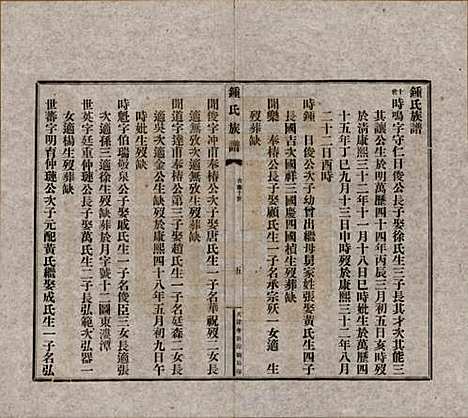 鍾氏族譜
十世
時鳴字守仁日俊公長子娶徐氏生三子長其才次其能三
其讓公生於明萬歷四十四年丙辰三月初五日亥時歿
於清康熙三十二年十一月十八日巳時妣生於萬歷四
十五年丁巳九月十三日申時歿於康熙三十二年八月
二十二日酉時
時鍾 日俊公次子幼曾出繼母舅家姓張娶黃氏生四子
長國吉次國祥三國慶四國楨生歿葬缺
開樂 奉椿公長子娶顧氏生一子名承宗歿一女適 生
歿葬缺
鍾氏族譜
五
開俊字冲甫奉椿公次子娶唐氏生一子名華祝歿二女長
適無攷次適無攷生歿葬缺
開道字達甫奉椿公第三子娶趙氏生一子名廷森二女長
適吳次適金公生缺歿於康熙四十八年五月初九日午
時妣生歿缺
時魁字伯瑞敬泉公子娶戚氏生一子名俊臣三女長適張
次適孫三適徐生歿缺葬於月字號十二圖東港潭
世英字廷重仲璉公長子娶萬氏生二子長弘範次弘器一
女適楊生歿葬缺
世蕃字明育仲璉公次子元配蔽氏繼娶成氏生一子名弘